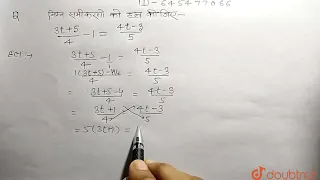 (1)-645477066
Q निम्न समीकरणों को हल कीजिए-
3t+5/4 -1 = 4t-3/5
हल:- 3t+5/4 - 1/1 = 4t-3/5
1(3t+5)-4/4 = 4t-3/5
= 3t+5-4/4 = 4t-3/5
= 3t+1/4 4t-3/5
= 5(3t+1) =
doubtnut